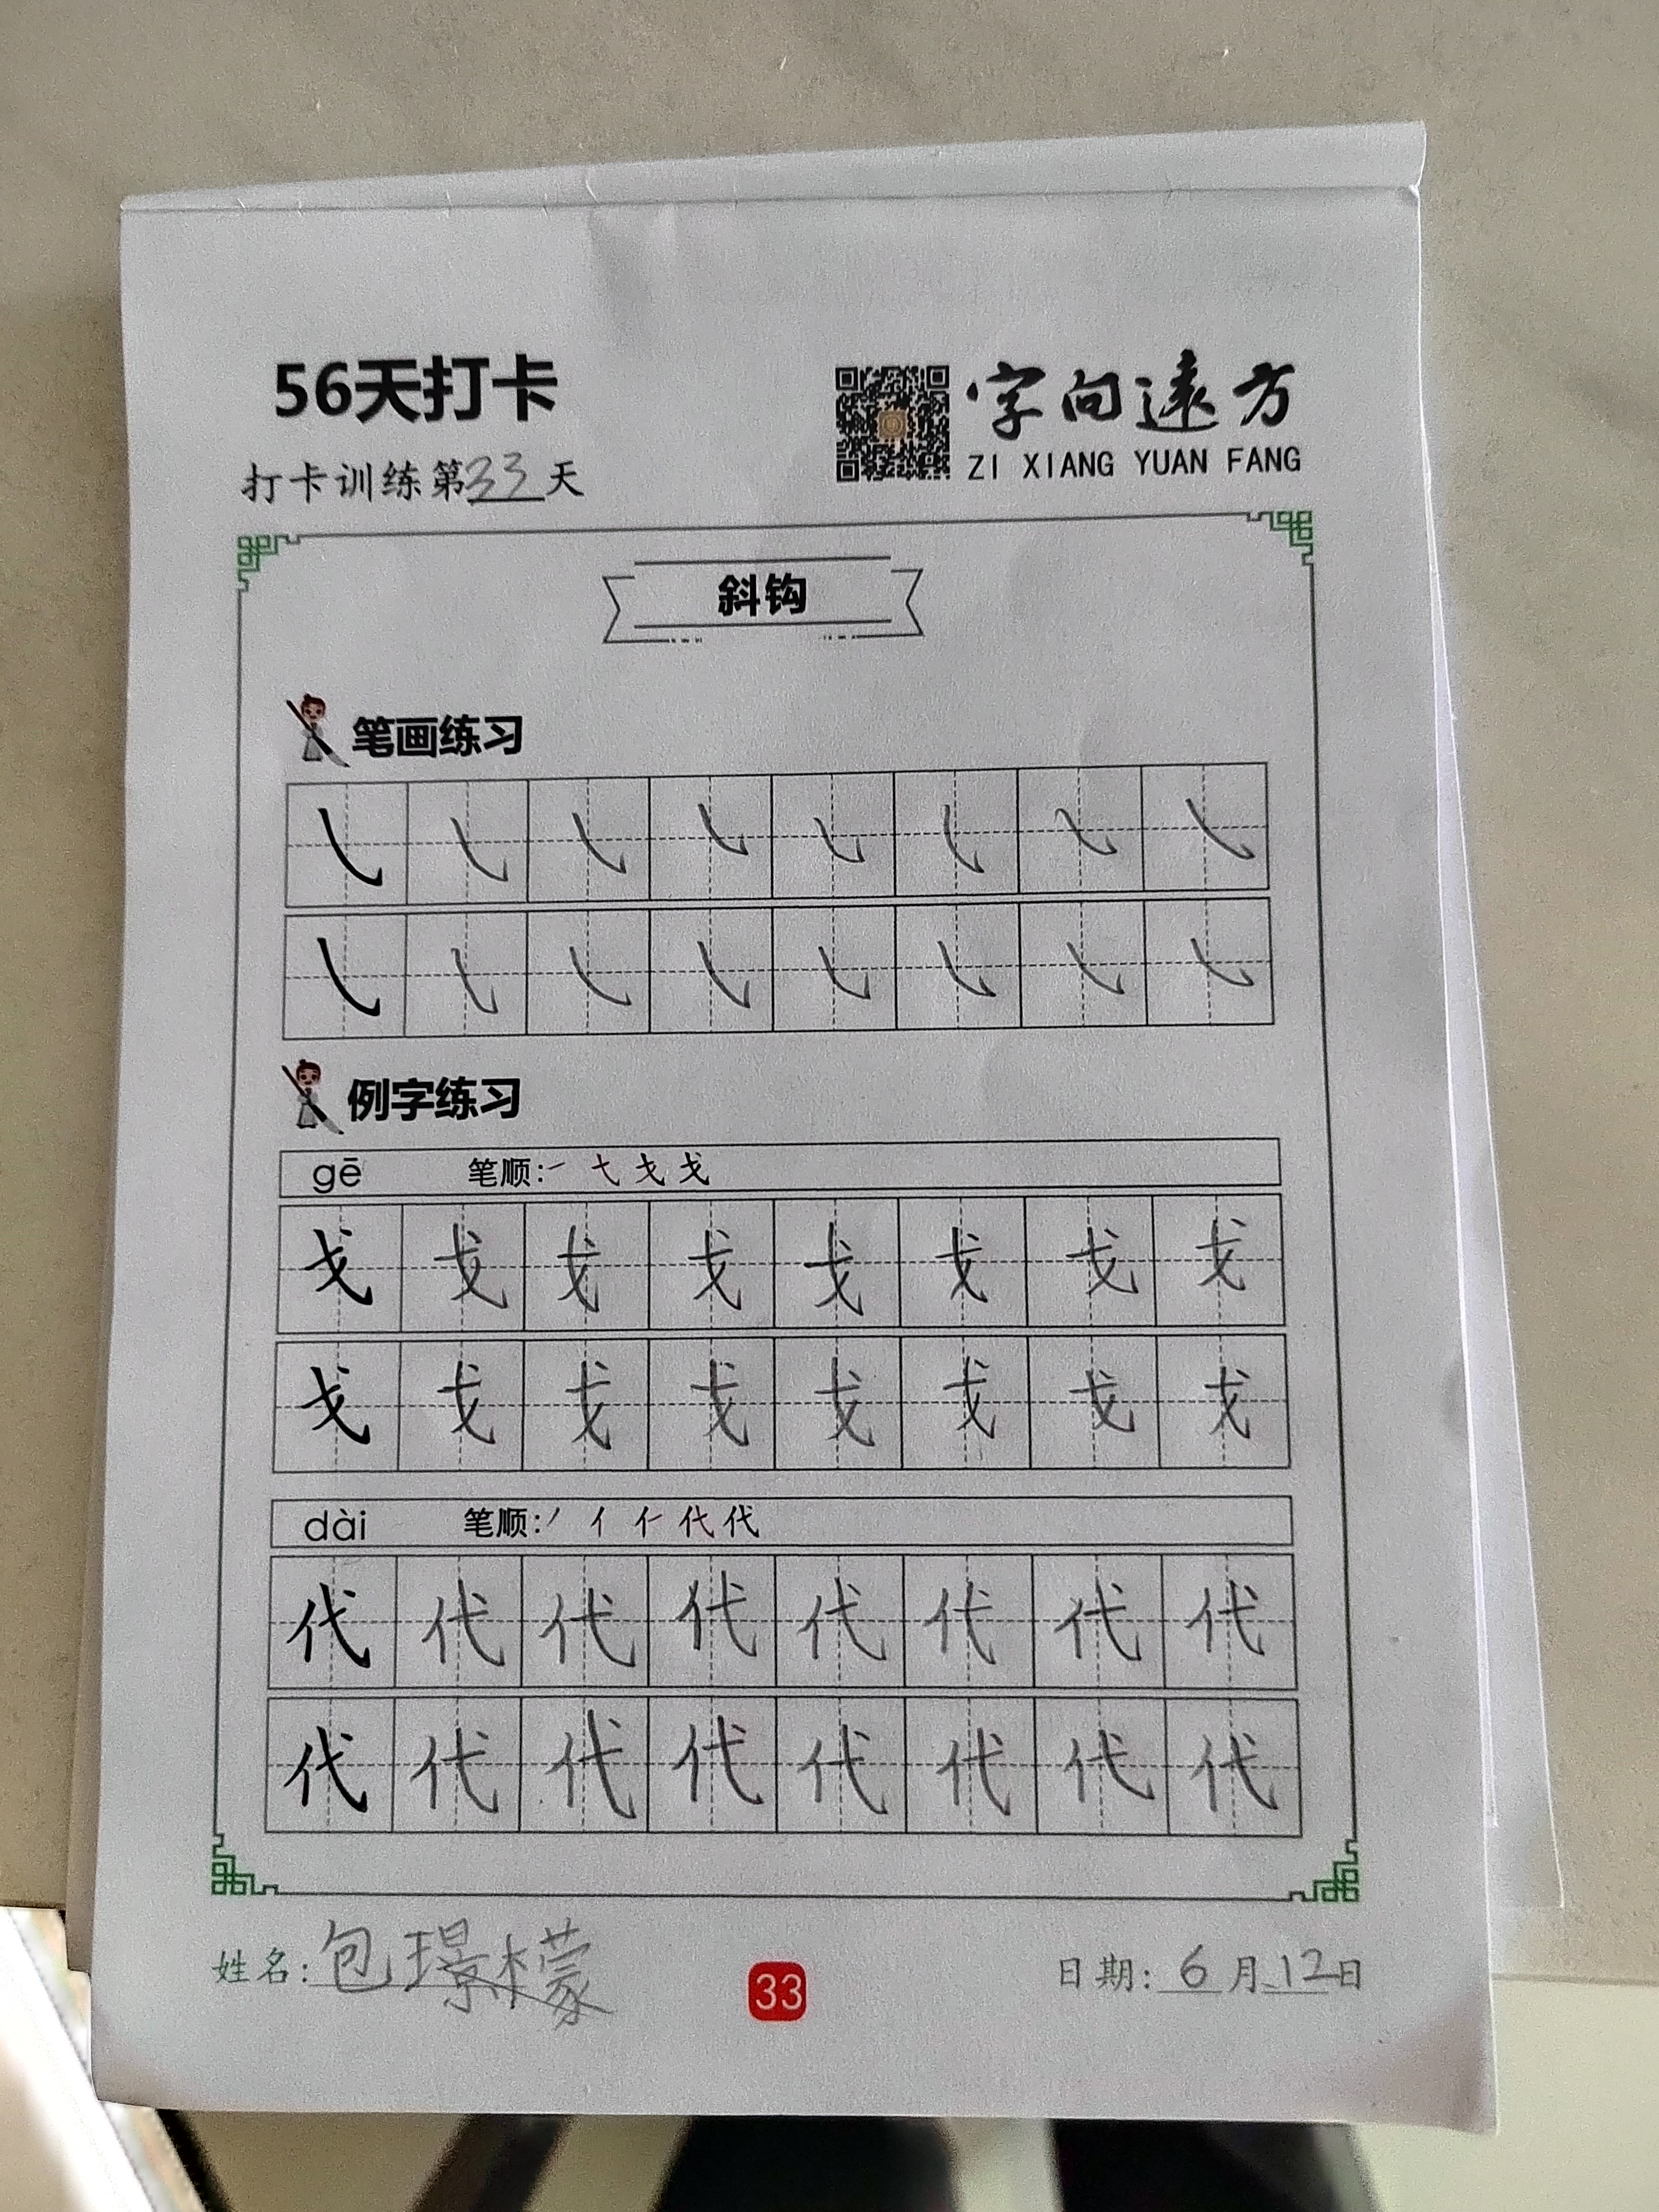 56天打卡
字向遠方
ZI XIANG YUAN FANG
打卡训练第33天
斜钩
笔画练习
㇂ ㇂ ㇂ ㇂ ㇂ ㇂ ㇂ ㇂
㇂ ㇂ ㇂ ㇂ ㇂ ㇂ ㇂ ㇂
例字练习
gē 笔顺:一 弋 戈 戈
戈 戈 戈 戈 戈 戈 戈 戈
戈 戈 戈 戈 戈 戈 戈 戈
dài 笔顺:丿 亻 仁 代 代
代 代 代 代 代 代 代 代
代 代 代 代 代 代 代 代
姓名:包璟檬
33
日期:6月12日